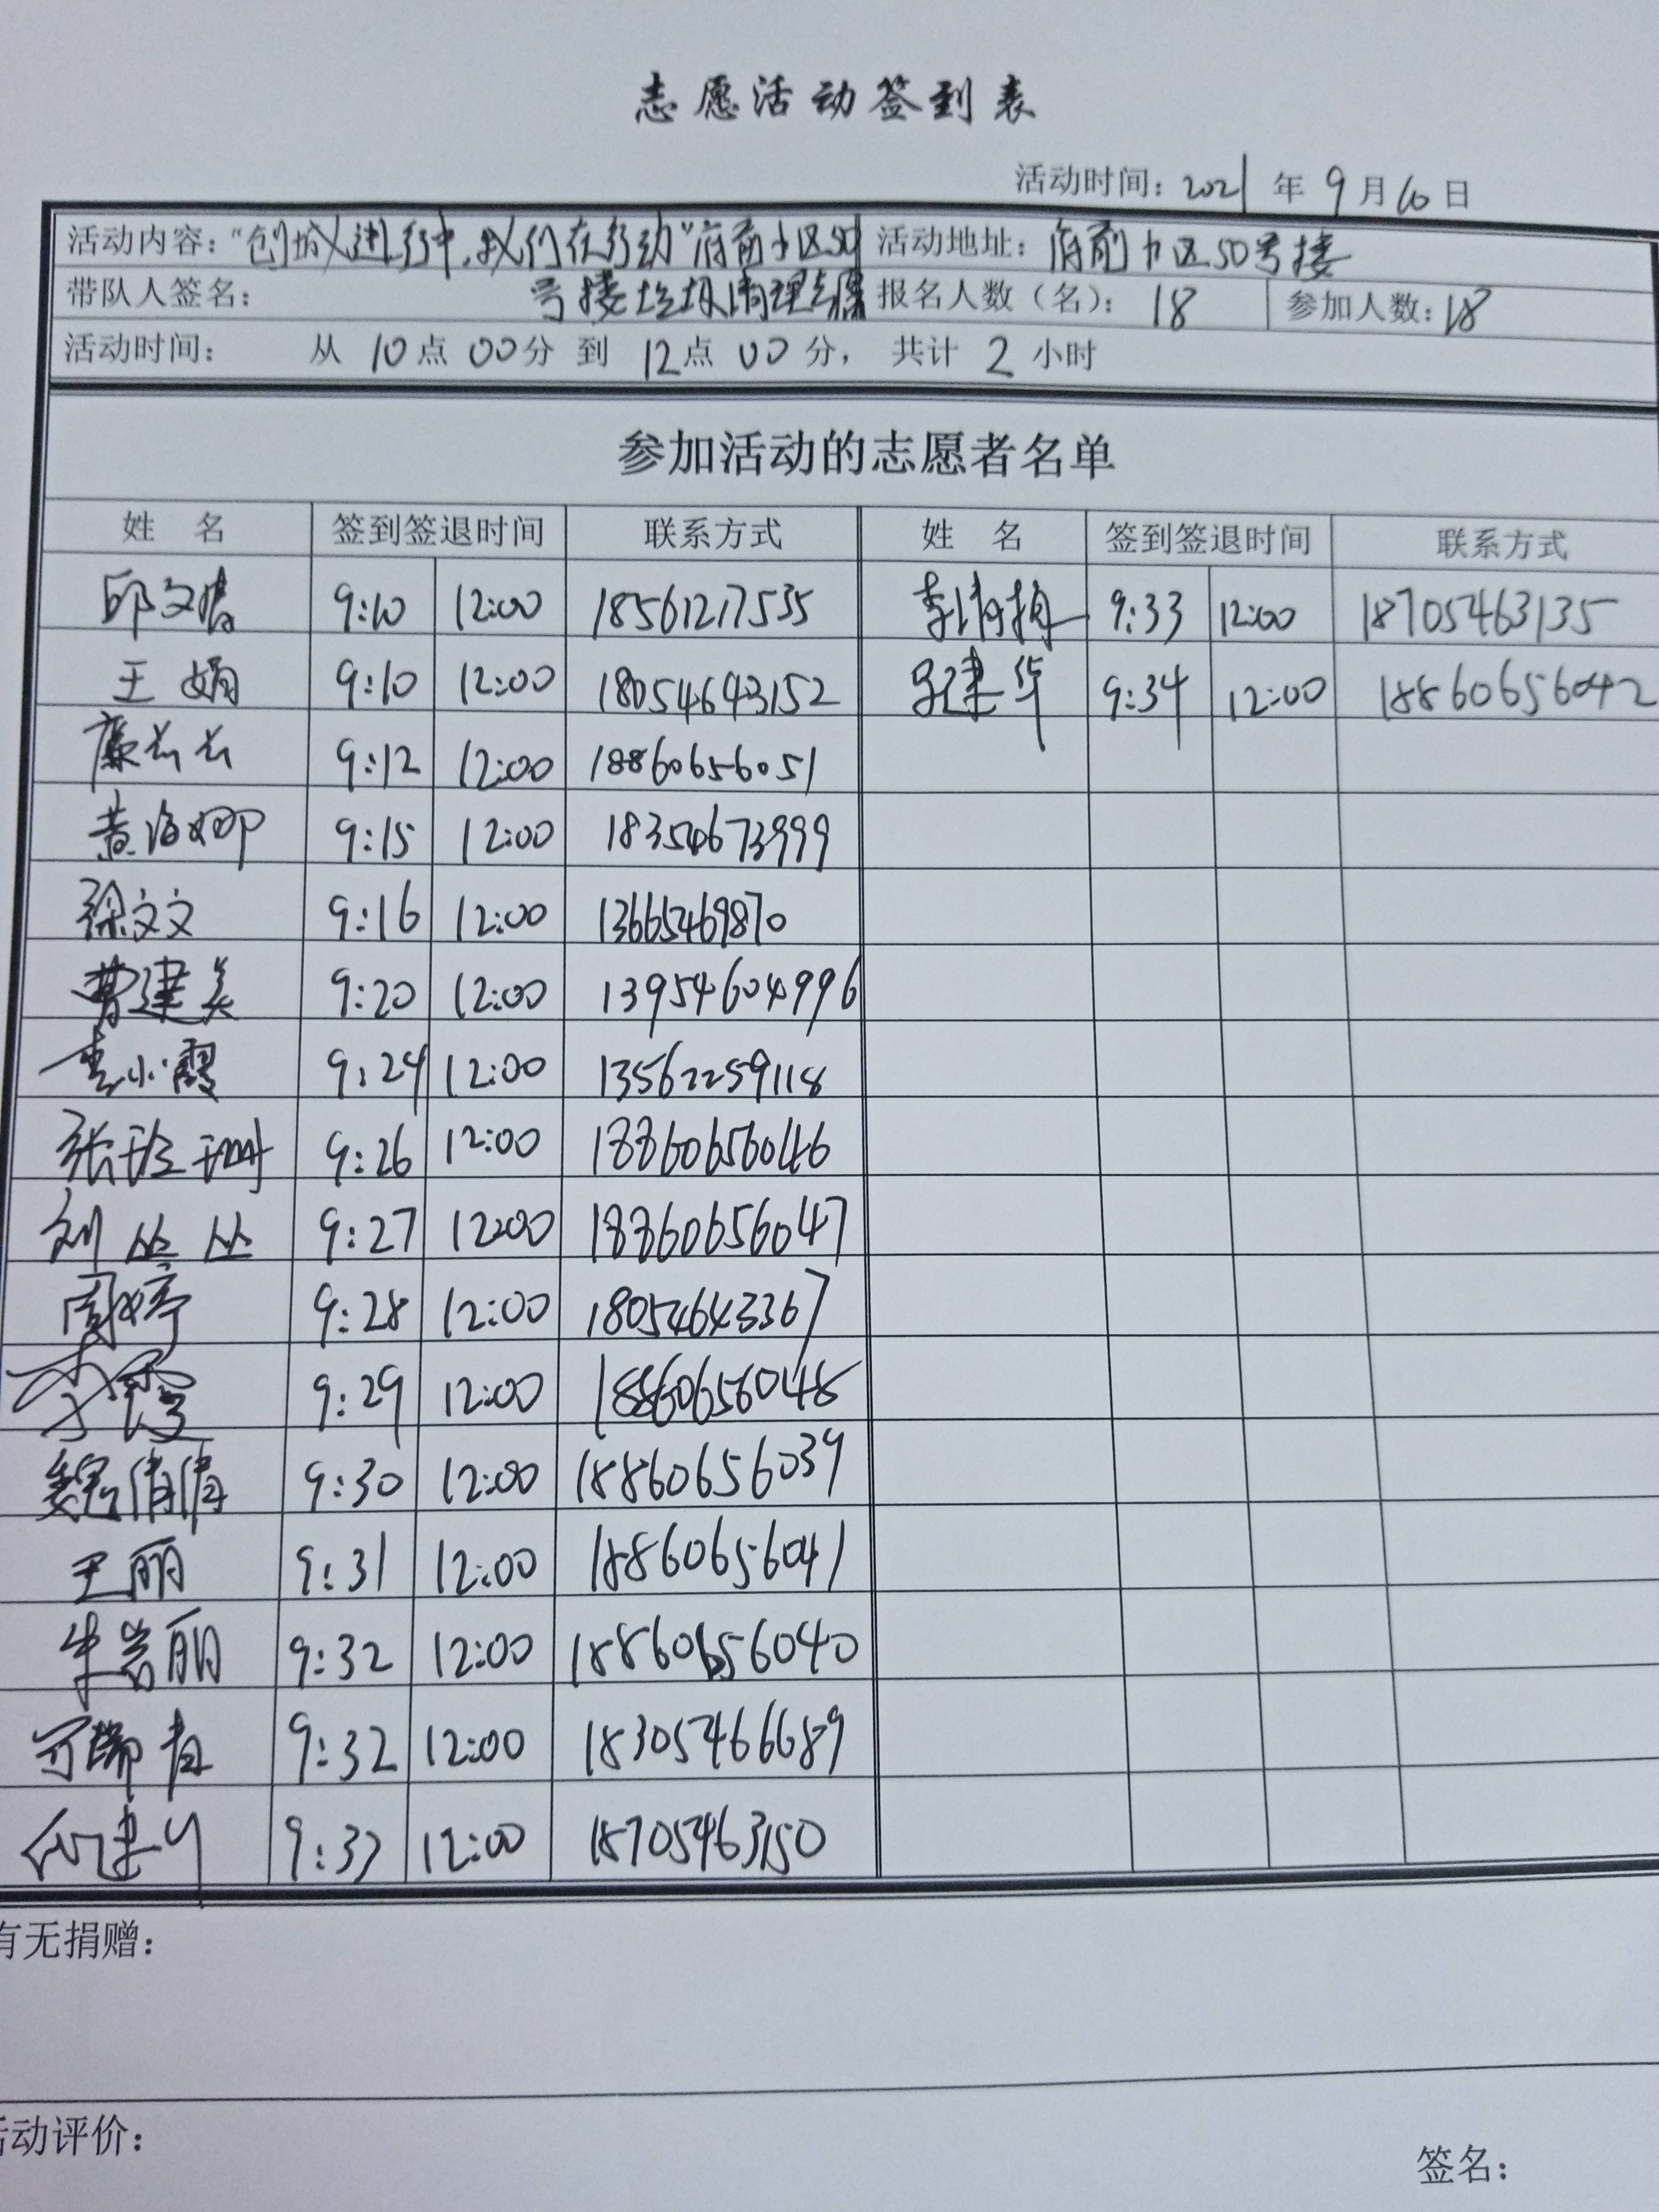 志愿活动签到表
活动时间：2021 年 9 月 10 日
活动内容：“创城进行中，我们在行动”府前小区50 活动地址：府前小区50号楼
带队人签名： 号楼垃圾清理志愿 报名人数（名）：18 参加人数：18
活动时间： 从 10 点 00 分 到 12 点 00 分， 共计 2 小时
参加活动的志愿者名单
姓 名 签到签退时间 联系方式 姓 名 签到签退时间 联系方式
邱文倩 9:10 12:00 18561217535 李倩梅 9:33 12:00 18705463135
王娟 9:10 12:00 18054643152 建华 9:34 12:00 18860656042
廉芸芸 9:12 12:00 18860656051
黄海娜 9:15 12:00 18354673999
徐文文 9:16 12:00 13665469870
曹建美 9:20 12:00 13954604996
李小霞 9:24 12:00 13562259118
张玲珊 9:26 12:00 18860656046
刘丛丛 9:27 12:00 18860656047
周婷 9:28 12:00 18054643367
李霞 9:29 12:00 18860656048
魏倩倩 9:30 12:00 18860656039
王丽 9:31 12:00 18860656041
朱岩丽 9:32 12:00 18860656040
9:32 12:00 18305466689
9:33 12:00 18705463150
有无捐赠：
活动评价：
签名：